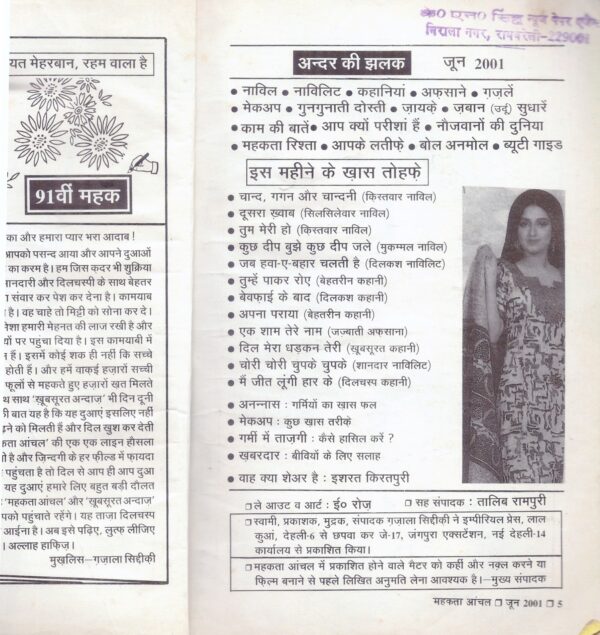 यत मेहरबान, रहम वाला है
91वीं महक
का और हमारा प्यार भरा आदाब !
आपको पसन्द आया और आपने दुआओं
का करम है। हम जिस कदर भी शुक्रिया
मानदारी और दिलचस्पी के साथ बेहतर
संवार कर पेश कर देना है। कामयाब
है। वह चाहे तो मिट्टी को सोना कर दे।
मेशा हमारी मेहनत की लाज रखी है और
यों पर पहुंचा दिया है। इस कामयाबी में
न हैं। इसमें कोई शक ही नहीं कि सच्चे
होती हैं। और हमें वाकई हज़ारों सच्ची
फूलों से महकते हुए हज़ारों खत मिलते
थ साथ 'ख़ूबसूरत अन्दाज़' भी दिन दूनी
री बात यह है कि यह दुआएं इसलिए नहीं
ढ़ने को मिलती हैं और दिल खुश कर देती
कता आंचल' की एक एक लाइन हौसला
है और ज़िन्दगी के हर फील्ड में फायदा
पहुंचता है तो दिल से आप ही आप दुआ
यह दुआएं हमारे लिए बहुत बड़ी दौलत
'महकता आंचल' और 'ख़ूबसूरत अन्दाज़'
पको पहुंचाते रहेंगे। यह ताजा दिलचस्प
आईना है। अब इसे पढ़िए, लुत्फ लीजिए
। अल्लाह हाफ़िज़।
मुखलिस—गज़ाला सिद्दीकी
के० एल० सिंह न्यूज पेपर एजेन्ट
बिराला नगर, रायबरेली-229001
अन्दर की झलक जून 2001
● नाविल ● नाविलिट ● कहानियां ● अफ़साने ● ग़ज़लें
● मेकअप ● गुनगुनाती दोस्ती ● ज़ायके ● ज़बान (उर्दू) सुधारें
● काम की बातें● आप क्यों परीशां हैं ● नौजवानों की दुनिया
● महकता रिश्ता ● आपके लतीफ़े ● बोल अनमोल ● ब्यूटी गाइड
इस महीने के ख़ास तोहफ़े
● चान्द, गगन और चान्दनी (क़िस्तवार नाविल)
● दूसरा ख़्वाब (सिलसिलेवार नाविल)
● तुम मेरी हो (किस्तवार नाविल)
● कुछ दीप बुझे कुछ दीप जले (मुकम्मल नाविल)
● जब हवा-ए-बहार चलती है (दिलकश नाविलिट)
● तुम्हें पाकर रोए (बेहतरीन कहानी)
● बेवफाई के बाद (दिलकश कहानी)
● अपना पराया (बेहतरीन कहानी)
● एक शाम तेरे नाम (जज्बाती अफ़साना)
● दिल मेरा धड़कन तेरी (ख़ूबसूरत कहानी)
● चोरी चोरी चुपके चुपके (शानदार नाविलिट)
● मैं जीत लूंगी हार के (दिलचस्प कहानी)
● अनन्नास : गर्मियों का ख़ास फल
● मेकअप : कुछ ख़ास तरीक़े
● गर्मी में ताज़गी : कैसे हासिल करें ?
● ख़बरदार : बीवियों के लिए सलाह
● वाह क्या शेअर है : इशरत किरतपुरी
❏ ले आउट व आर्ट : ई० रोज़ ❏ सह संपादक : तालिब रामपुरी
❏ स्वामी, प्रकाशक, मुद्रक, संपादक गज़ाला सिद्दीकी ने इम्पीरियल प्रेस, लाल
कुआं, देहली-6 से छपवा कर जे-17, जंगपुरा एक्सटेंशन, नई देहली-14
कार्यालय से प्रकाशित किया।
❏ महकता आंचल में प्रकाशित होने वाले मैटर को कहीं और नक़्ल करने या
फ़िल्म बनाने से पहले लिखित अनुमति लेना आवश्यक है।—मुख्य संपादक
महकता आंचल ❏ जून 2001 ❏ 5